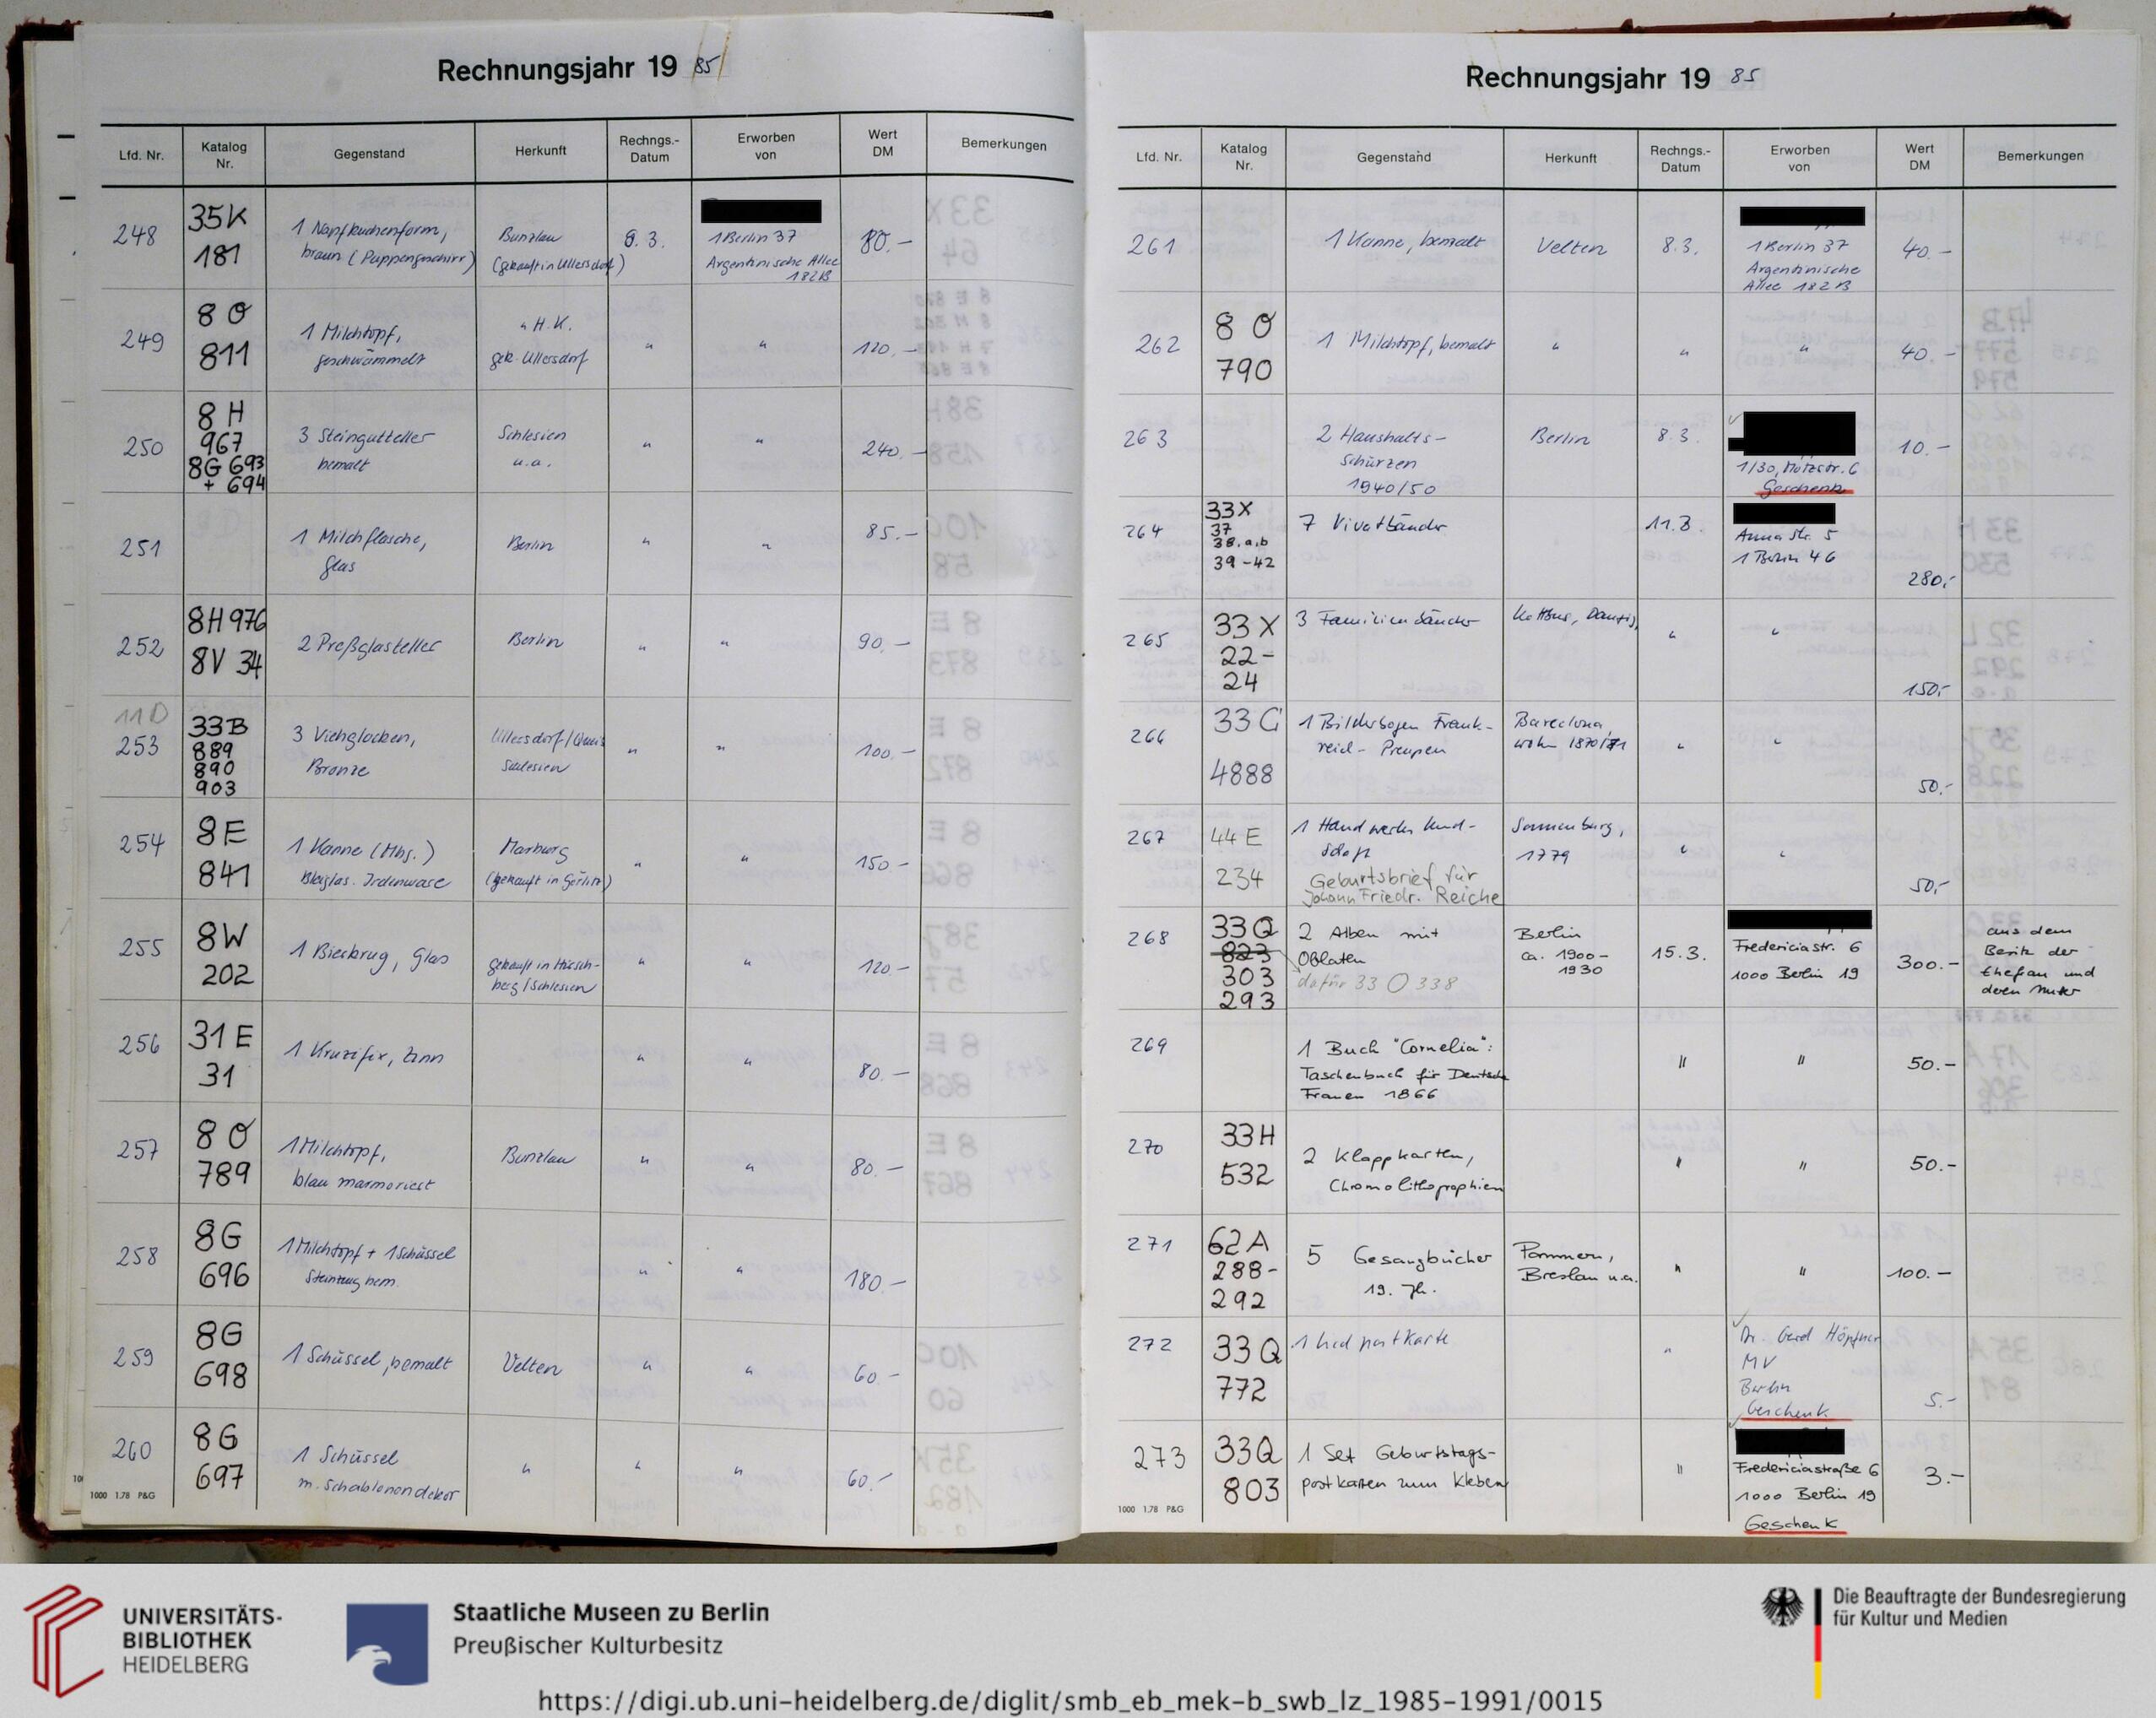 Rechnungsjahr 19 85
Lfd. Nr.
Katalog
Nr.
Gegenstand
Herkunft
Rechngs.-
Datum
Erworben
von
Wert
DM
Bemerkungen
248
35K
181
1 Napfkuchenform,
braun (Puppengeschirr)
Bunzlau
(gekauft in Ullersdorf)
8.3.
1 Berlin 37
Argentinische Allee
182B
80.-
249
8 O
811
1 Milchtopf,
geschwämmelt
" H.K.
gek. Ullersdorf
"
"
120.-
250
8 H
967
8G 693
+ 694
3 Steingutteller
bemalt
Schlesien
u.a.
"
"
240.-
251
1 Milchflasche,
Glas
Berlin
"
"
85.-
252
8H 976
8V 34
2 Preßglasteller
Berlin
"
"
90.-
11 D
253
33B
889
890
903
3 Viehglocken,
Bronze
Ullersdorf/Queis
Schlesien
"
"
100.-
254
8E
841
1 Kanne (Mbg.)
Bleiglas. Irdenware
Marburg
(gekauft in Görlitz)
"
"
150.-
255
8W
202
1 Bierkrug, Glas
gekauft in Hirsch-
berg/Schlesien
"
"
120.-
256
31 E
31
1 Kruzifix, Zinn
"
"
80.-
257
8 O
789
1 Milchtopf,
blau marmoriert
Bunzlau
"
"
80.-
258
8G
696
1 Milchtopf + 1 Schüssel
Steinzeug bem.
"
"
180.-
259
8G
698
1 Schüssel, bemalt
Velten
"
"
60.-
260
8G
697
1 Schüssel
m. Schablonendekor
"
"
"
60.-
1000 1.78 P&G
Rechnungsjahr 19 85
Lfd. Nr.
Katalog
Nr.
Gegenstand
Herkunft
Rechngs.-
Datum
Erworben
von
Wert
DM
Bemerkungen
261
1 Kanne, bemalt
Velten
8.3.
1 Berlin 37
Argentinische
Allee 182B
40.-
262
8 O
790
1 Milchtopf, bemalt
"
"
"
40.-
263
2 Haushalts-
schürzen
1940/50
Berlin
8.3.
1/30, Motzstr. 6
Geschenk
10.-
264
33X
37
38.a,b
39-42
7 Vivatbänder
11.3.
Anna Str. 5
1 Berlin 46
280,-
265
33 X
22-
24
3 Familienbänder
Kottbus, Danzig,
"
"
150,-
266
33 G
4888
1 Bilderbogen Frank-
reich - Preußen
Barcelona,
wohl 1870/71
"
"
50.-
267
44 E
234
1 Handwerks Kund-
schaft
Geburtsbrief für
Johann Friedr. Reiche
Sonnenburg,
1779
"
"
50,-
268
33Q
823
303
293
2 Alben mit
Oblaten
dafür 33 O 338
Berlin
ca. 1900-
1930
15.3.
Fredericiastr. 6
1000 Berlin 19
300.-
aus dem
Besitz der
Ehefrau und
deren Mutter
269
1 Buch "Cornelia":
Taschenbuch für Deutsche
Frauen 1866
"
"
50.-
270
33H
532
2 Klappkarten,
Chromolithographien
"
"
50.-
271
62A
288-
292
5 Gesangbücher
19. Jh.
Pommern,
Breslau u.a.
"
"
100.-
272
33Q
772
1 Liedpostkarte
"
Dr. Gerd Höpfner
MV
Berlin
Geschenk
5.-
273
33Q
803
1 Set Geburtstags-
postkarten zum Kleben
"
Fredericiastraße 6
1000 Berlin 19
Geschenk
3.-
1000 1.78 P&G
UNIVERSITÄTS-
BIBLIOTHEK
HEIDELBERG
Staatliche Museen zu Berlin
Preußischer Kulturbesitz
Die Beauftragte der Bundesregierung
für Kultur und Medien
https://digi.ub.uni-heidelberg.de/diglit/smb_eb_mek-b_swb_lz_1985-1991/0015